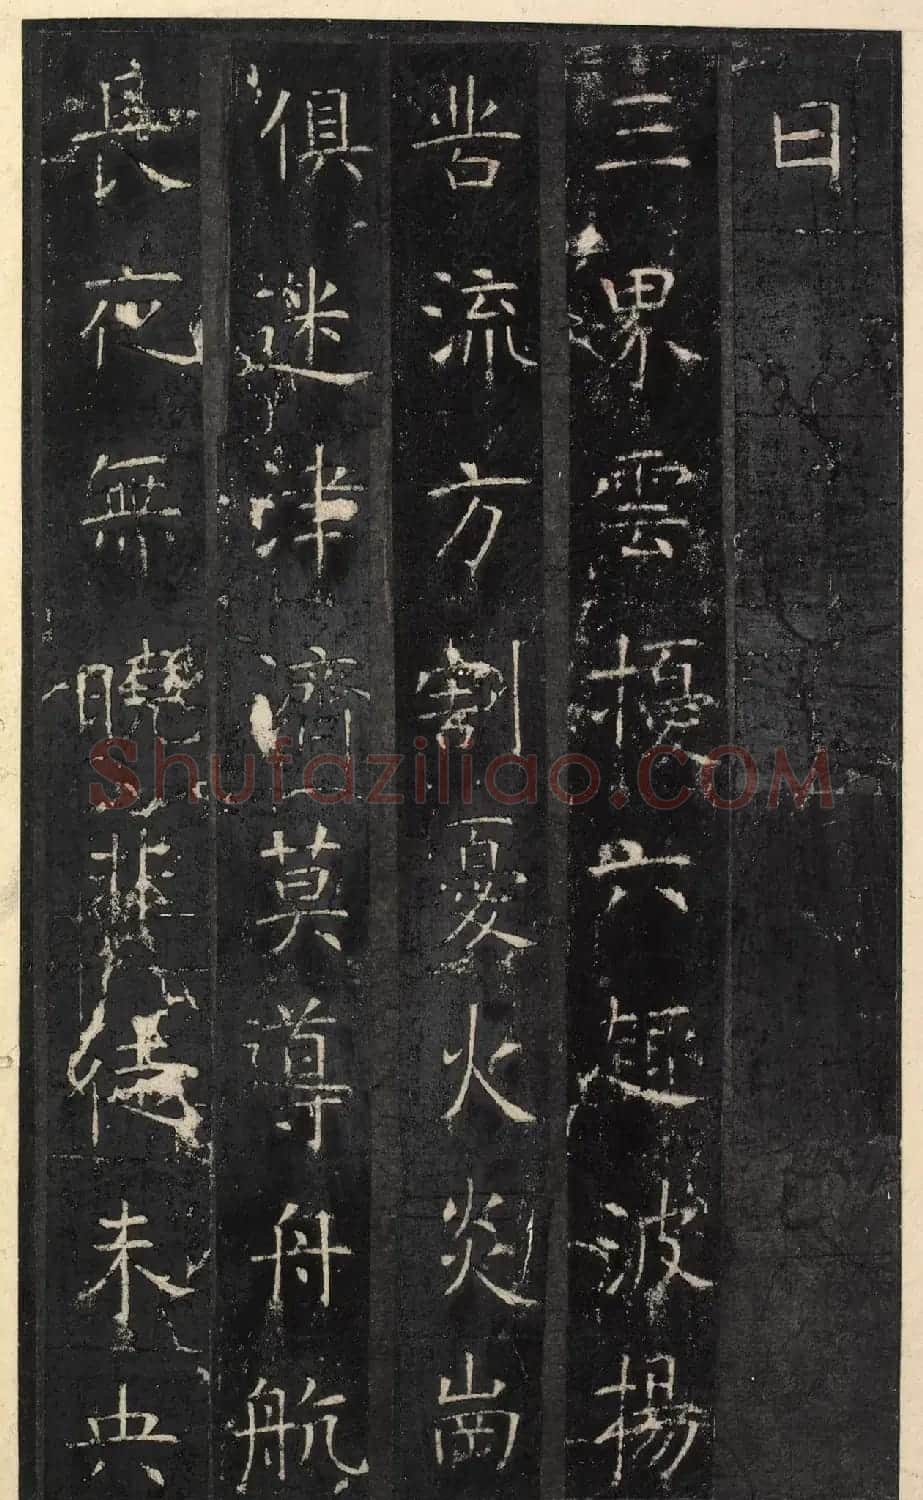 曰
三界雲擾六趣波揚
苦流方割憂火炎崗
俱迷津濟莫導舟航
長夜無曉悲未央
Shufaziliao.COM